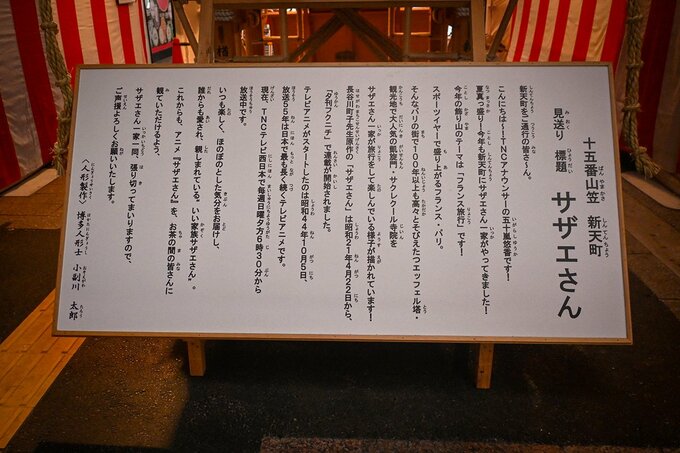 十五番山笠 新天町
見送り 標題 サザエさん
新天町をご通行の皆さ〜ん。
こんにちは〜!TNCアナウンサーの五十嵐悠香です!
夏真っ盛り!今年も新天町にサザエさん一家がやってきました!
今年の飾り山のテーマは「フランス旅行」です!
スポーツイヤーで盛り上がるフランス・パリ。
そんなパリの街で100年以上も高々とそびえたつエッフェル塔・
観光地で大人気の凱旋門・サクレクール寺院を
サザエさん一家が旅行をして楽しんでいる様子が描かれています!
長谷川町子先生原作の『サザエさん』は昭和21年4月22日から、
「夕刊フクニチ」で連載が開始されました。
テレビアニメがスタートしたのは昭和44年10月5日、
放送55年は日本で最も長く続くテレビアニメです。
現在、TNCテレビ西日本で毎週日曜夕方6時30分から
放送中です。
いつも楽しく、ほのぼのとした気分をお届けし、
誰からも愛され、親しまれている。いい家族サザエさん〟。
これからも、アニメ『サザエさん』を、お茶の間の皆さんに
観ていただけるよう、
サザエさん一家一同、張り切ってまいりますので、
ご声援よろしくお願いいたします。
〈人形製作〉 博多人形士 小副川 太郎